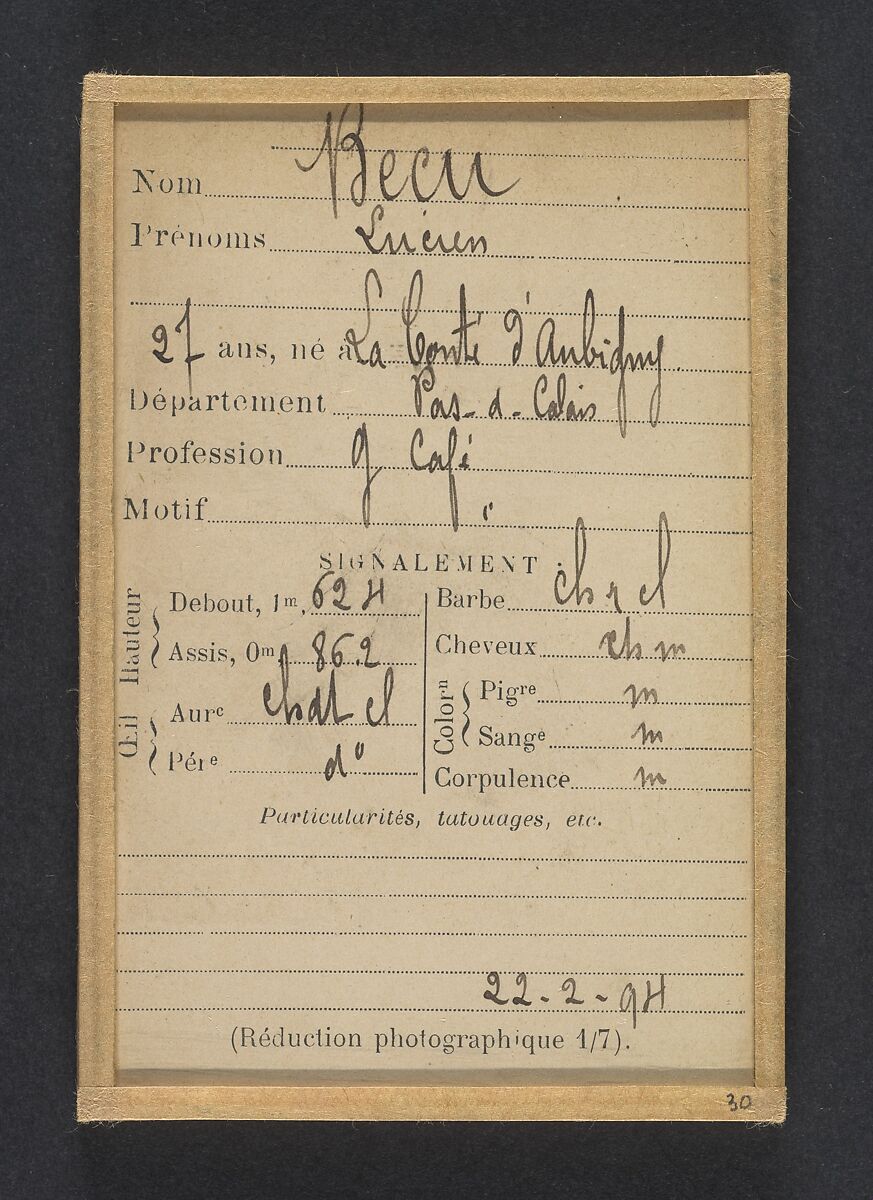 Nom Becu
Prénoms Lucien
27 ans, né à La Conté d'Aubigny.
Département Pas-d-Calais
Profession g Café
Motif "
SIGNALEMENT
Hauteur
Debout, 1m, 624
Assis, 0m, 86.2
Œil
Aure chdt cl
Pére d°
Barbe ch r cl
Cheveux ch m
Colorn
Pigre m
Sange m
Corpulence m
Particularités, tatouages, etc.
22-2-94
(Réduction photographique 1/7).
30